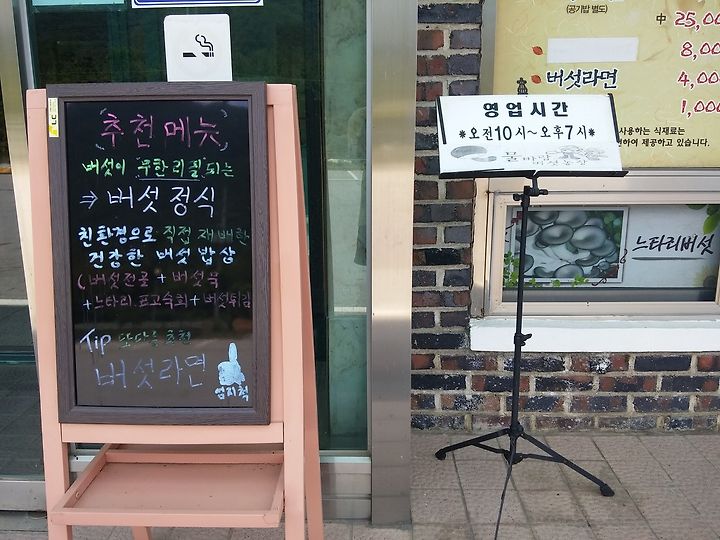 추천메뉴
버섯이 무한리필되는
⇒ 버섯정식
친환경으로 직접 재배한
건강한 버섯 밥상
(버섯전골 + 버섯묵
+느타리.표고숙회+버섯튀김
Tip 또다른 추천
버섯라면
엄지척
영업시간
*오전10시~오후7시*
(공기밥 별도)
中 25,00
8,00
버섯라면 4,00
1,000
사용하는 식재료는
하여 제공하고 있습니다.
느타리버섯